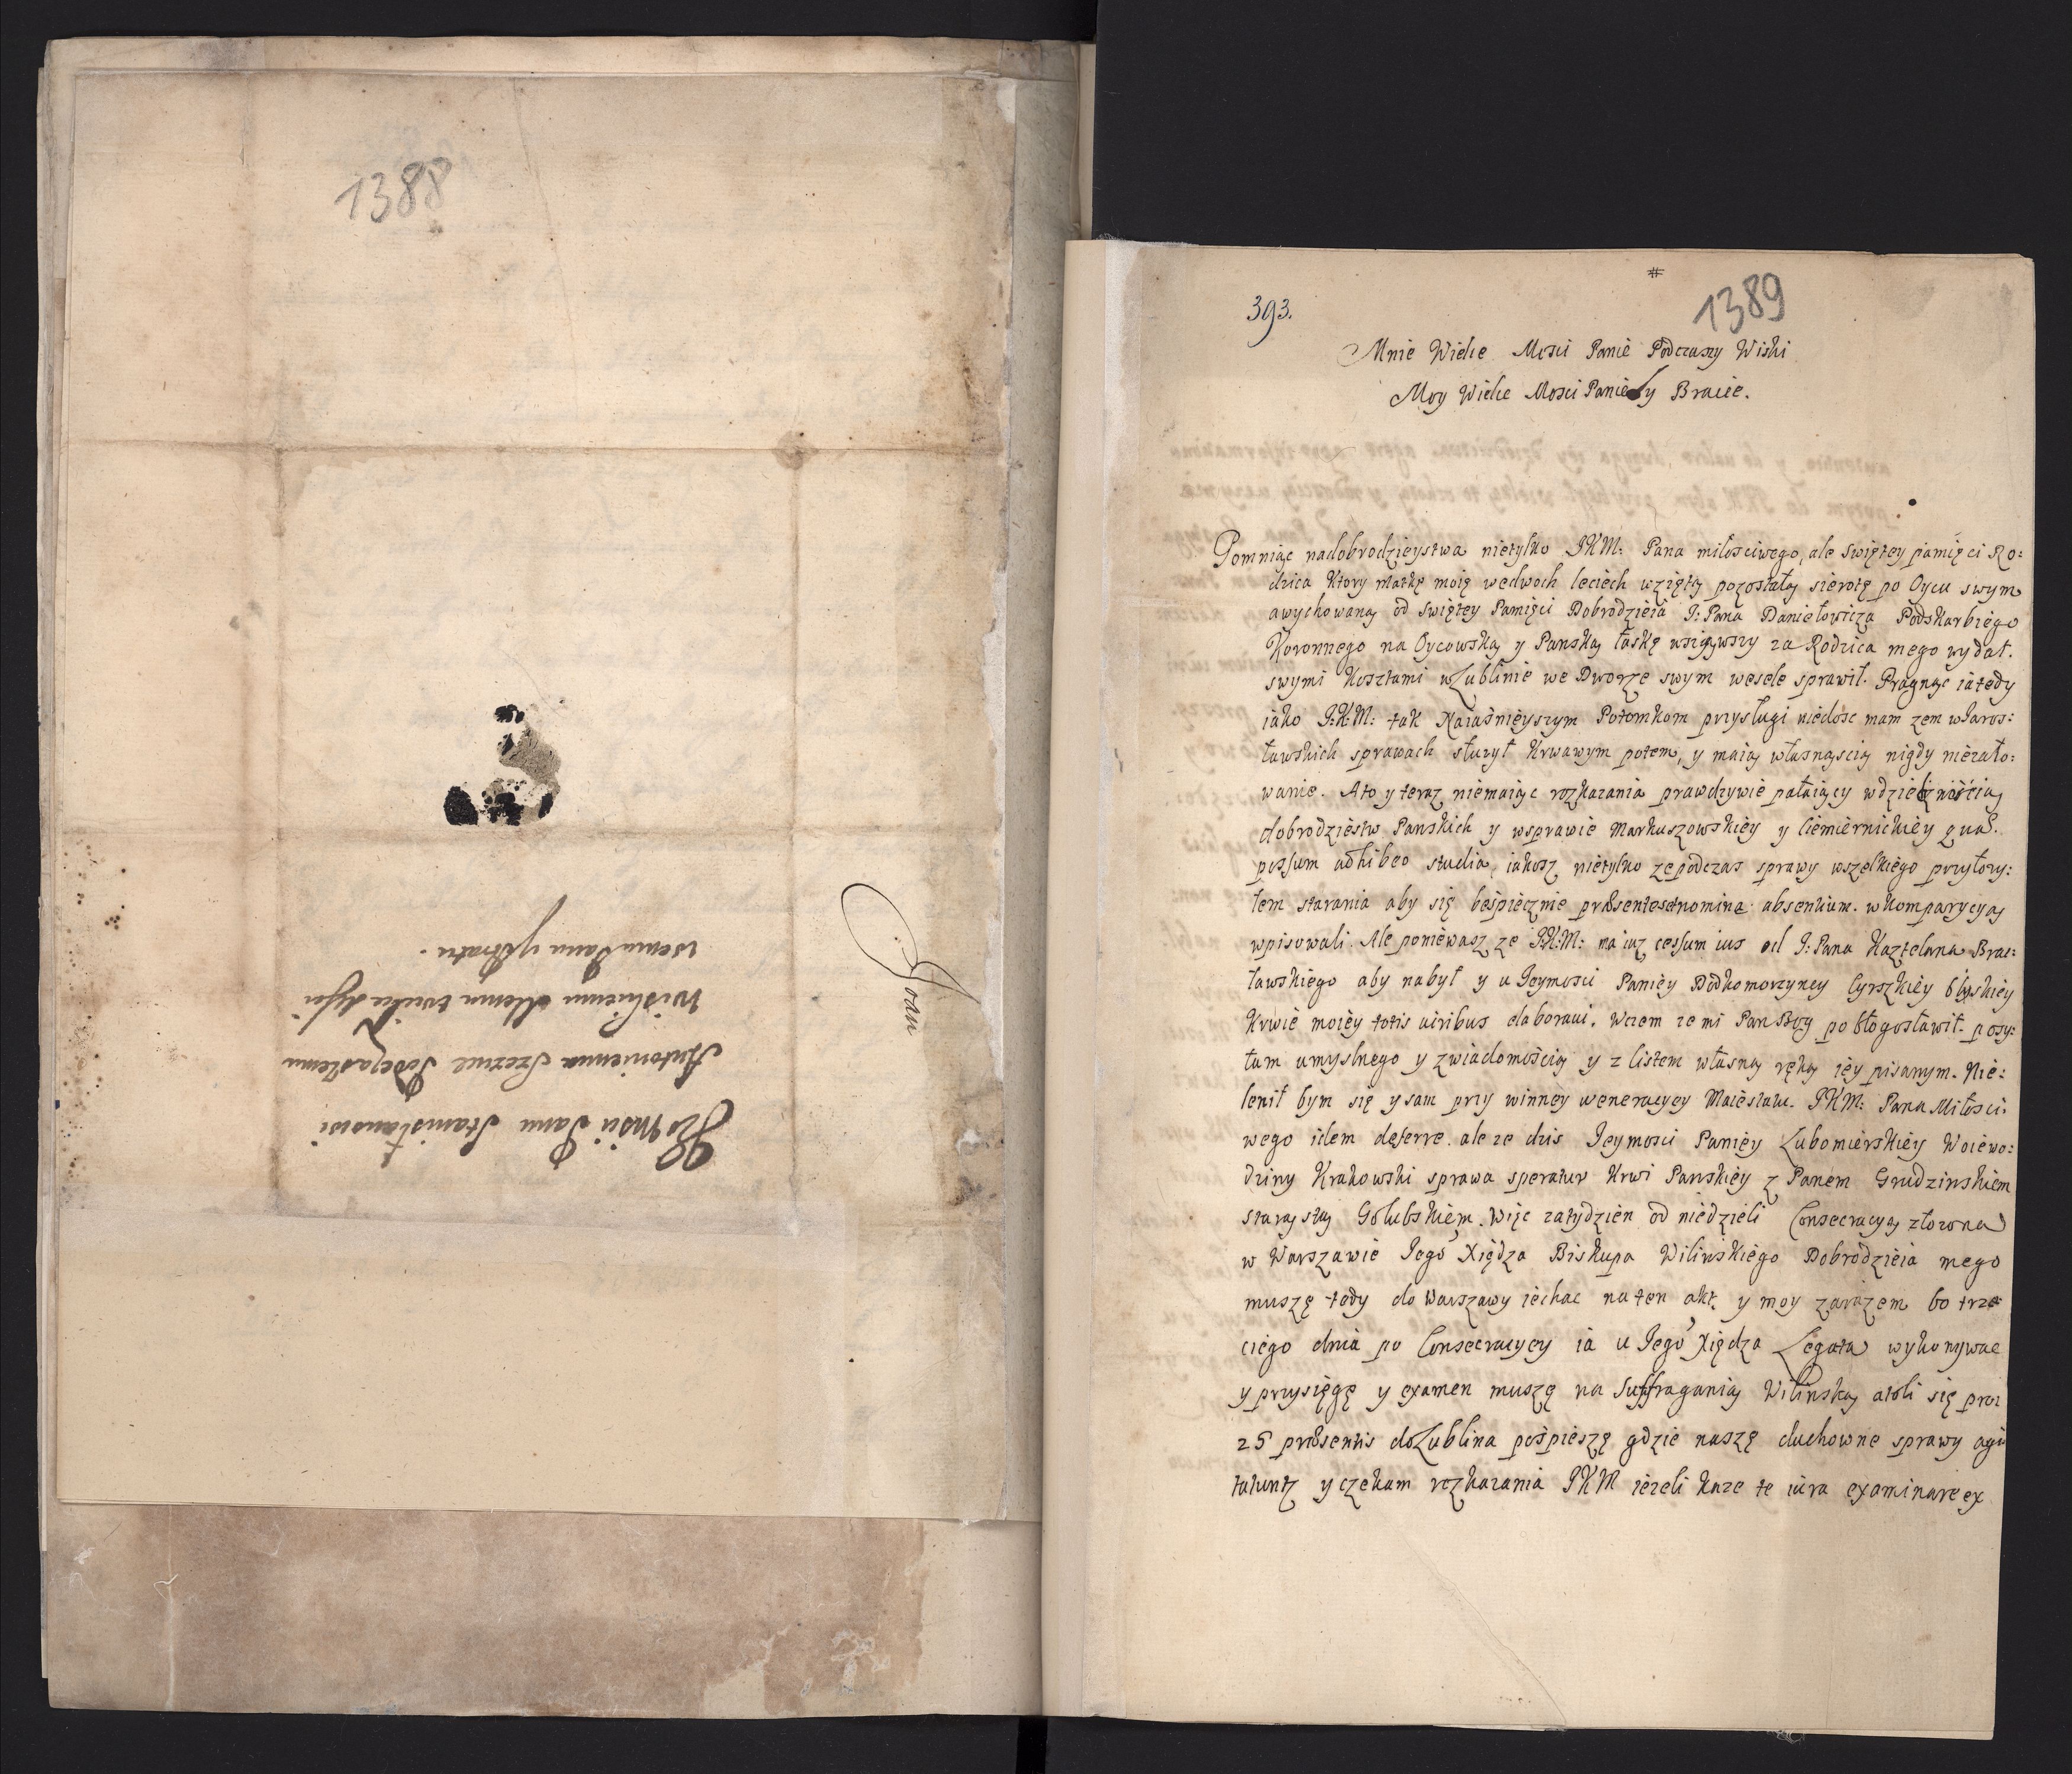 1388
Jego Mści Panu Stanisławowi
Antoniemu Szczuce Podczaszemu
Wiskiemu Memu wielce
wemu Panu y Bratu.
Joan
#
393.
1389
Mnie Wielce Mosci Panie Podczaszy Wiski
Moy Wielce Mosci Panie y Bracie.
Pomniąc nadobrodzieystwa nietylko JKM: Pana miłosciwego, ale swiętey pamięci Ro:
dzica ktory Matkę moię wedwoch leciech wziętą pozostałą sierotę po Oycu swym
awychowaną od swiętey Pamięci Dobrodzieia J: Pana Daniełowicza Podskarbiego
Koronnego na Oycowską y Panską łaskę wziąwszy za Rodzica mego wydał.
swymi kosztami w Lublinie we Dworze swym wesele sprawił. Pragnąc ia tedy
iako J:K:M: tak Naiasnieyszym Potomkom przysługi niedosc mam zem wJaros:
ławskich sprawach słuzył krwawym potem, y maią własnąscią nigdy niezało:
wanie. Ato y teraz niemaiąc rozkazania prawdziwie pałaiący wdzięcznością
dobrodzieistw Panskich y wsprawie Markuszowskiey y Ciemiernickiey qua.
possum adhibeo studia, iakosz nietylko ze podczas sprawy wszelkiego przyłozy:
łem starania aby się bespiecznie præsentes et nomine absentium. w komparycyą
wpisowali. Ale poniewasz ze J:K:M: ma iuz cessum ius od J: Pana Kaztelana Brac:
ławskiego aby nabył y u Jeymosci Paniey Podkomorzyney Cyrszkiey bliskiey
Krwie moiey totis viribus elaboravi. Wczem ze mi Pan Bog pobłogosławił. posy:
łam umyslnego y zwiadomością y z listem własną ręką iey pisanym. Nie:
lenił bym się y sam przy winney weneracyey Maiestatu. JKM: Pana Miłosci:
wego idem deferre. ale ze dzis Jeymosci Paniey Lubomierskiey Woiewo:
dziny Krakowski sprawa speratur krwi Panskiey z Panem Grudzinskiem
starąstą Golubskiem. Więc zatydzien od niedzieli Consecracyą złozona
w Warszawie Jego Xiędza Biskupa Wilinskiego Dobrodzieia mego
muszę tedy do Warszawy iechac na ten akt, y moy zarazem bo trze
ciego dnia po Consecracyey ia u Jego Xiędza Legata wykonywac
y przysięgę y examen muszę na Suffraganią Wilinską atoli się prze
25 præsentis do Lublina pospieszę gdzie nasze duchowne sprawy agi
tabuntur y czekam rozkazania JKM iezeli kaze te iura examinare ex